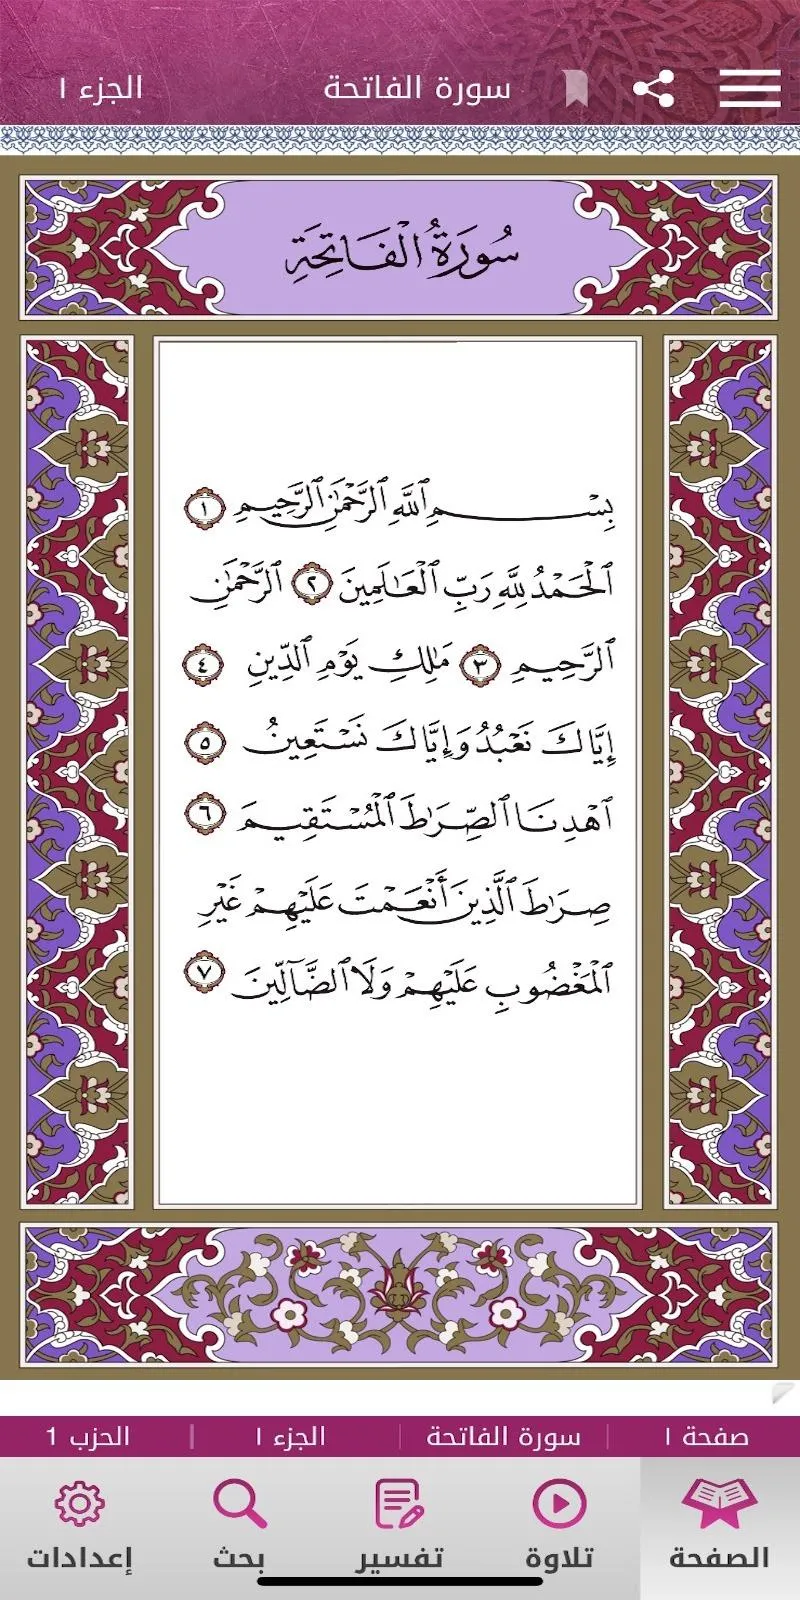 سورة الفاتحة الجزء ١
سُورَةُ الْفَاتِحَةِ
بِسْمِ ٱللَّهِ ٱلرَّحْمَٰنِ ٱلرَّحِيمِ ١
ٱلْحَمْدُ لِلَّهِ رَبِّ ٱلْعَٰلَمِينَ ٢ ٱلرَّحْمَٰنِ
ٱلرَّحِيمِ ٣ مَٰلِكِ يَوْمِ ٱلدِّينِ ٤
إِيَّاكَ نَعْبُدُ وَإِيَّاكَ نَسْتَعِينُ ٥
ٱهْدِنَا ٱلصِّرَٰطَ ٱلْمُسْتَقِيمَ ٦
صِرَٰطَ ٱلَّذِينَ أَنْعَمْتَ عَلَيْهِمْ غَيْرِ
ٱلْمَغْضُوبِ عَلَيْهِمْ وَلَا ٱلضَّآلِّينَ ٧
صفحة ١ سورة الفاتحة الجزء ١ الحزب 1
الصفحة تلاوة تفسير بحث إعدادات